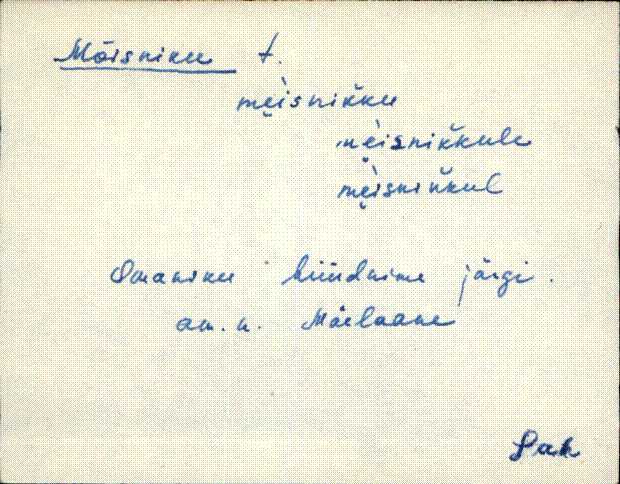 Mõisniku t.
mẹ̀isnikku
mẹ̀isnikkule
mẹ̀isnikkul
Omaniku hüüdnime järgi.
am. n. Mäelaane